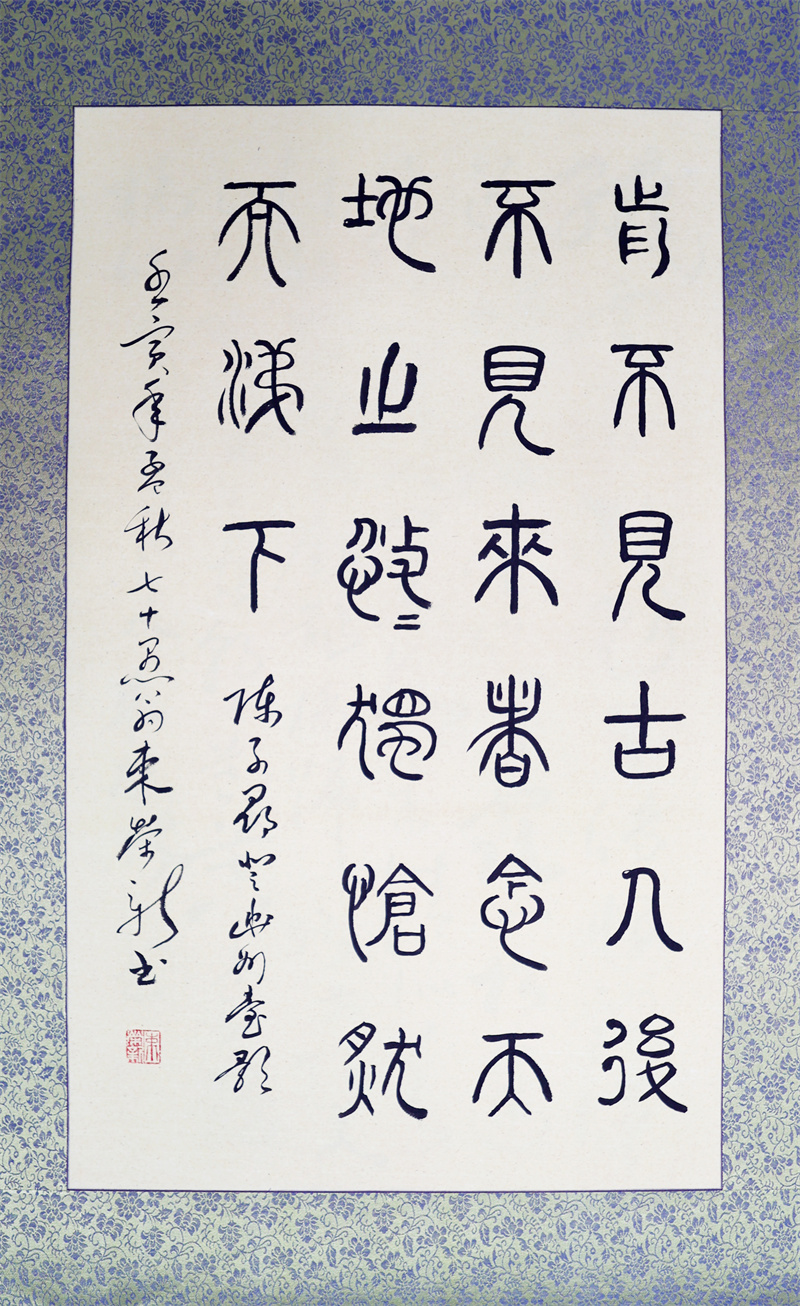 前不見古人後
不見來者念天
地之悠〻獨愴然
而涕下
陳子昂登幽州臺歌
壬寅年孟秋七十愚翁榮新書